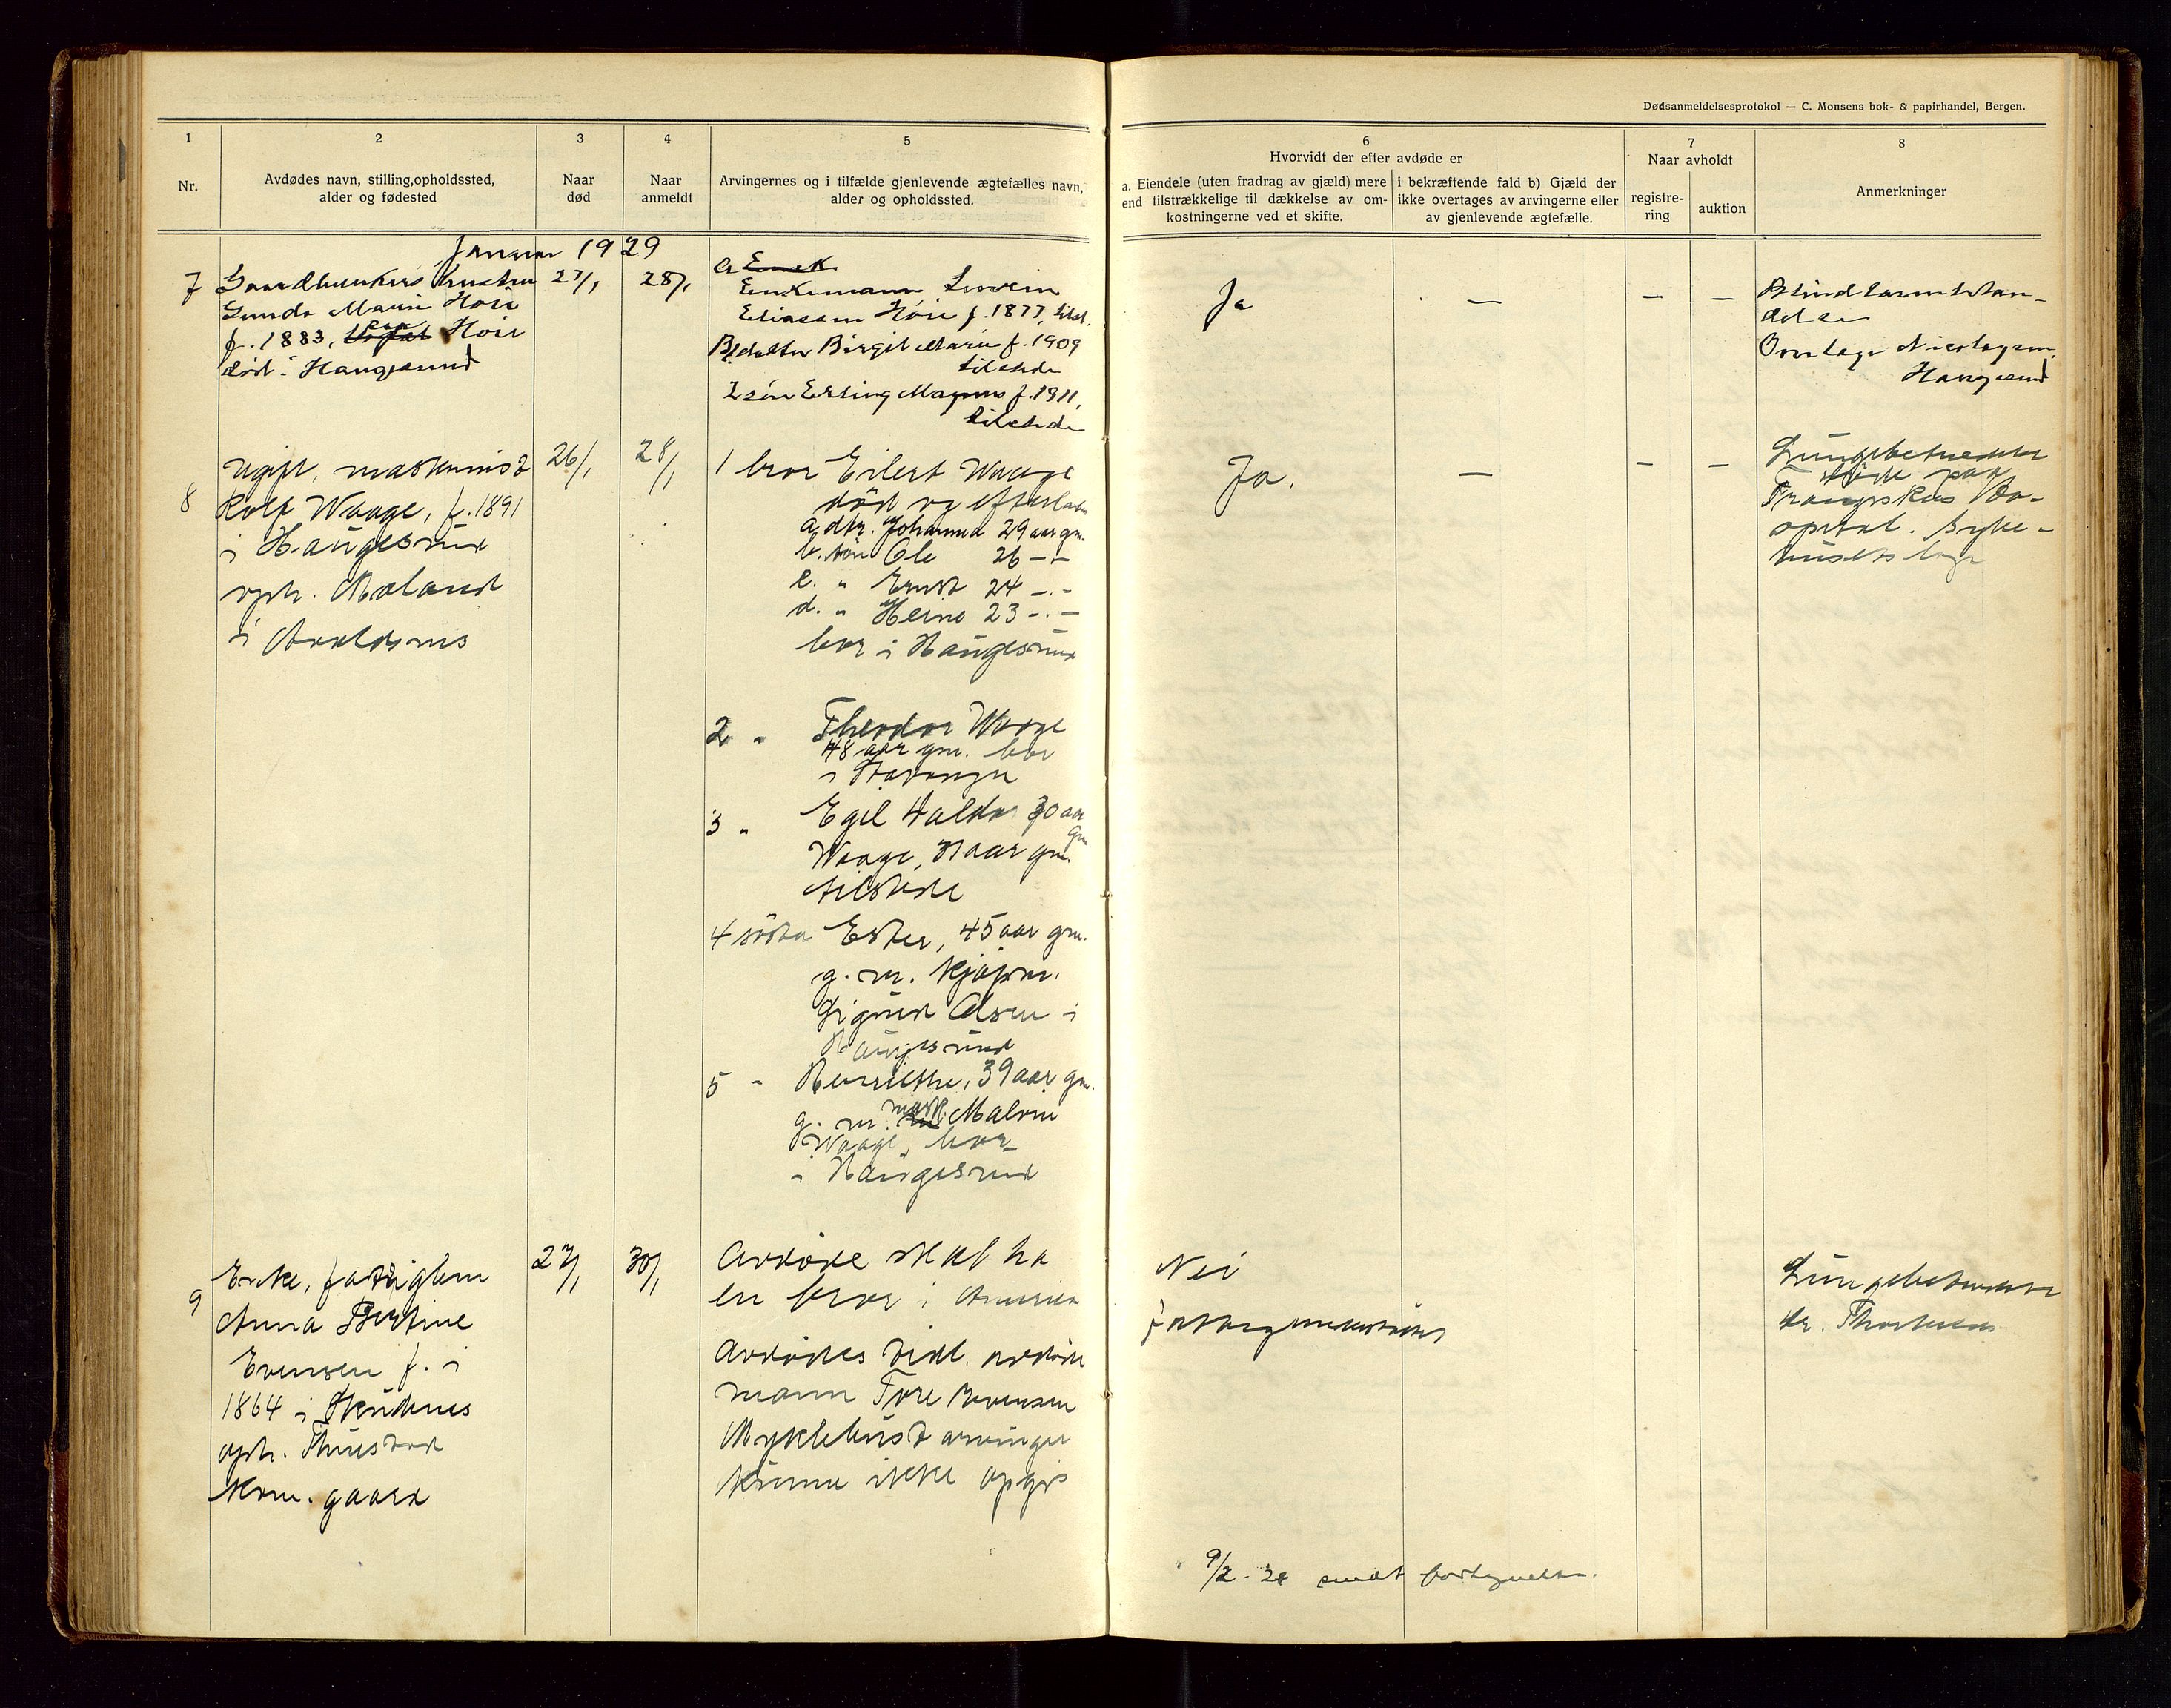 Dødsanmeldelsesprotokol — C. Monsens bok- & papirhandel, Bergen.
1
2
3
4
5
6
7
8
Nr.
Avdødes navn, stilling, opholdssted,
alder og fødested
Naar
død
Naar
anmeldt
Arvingernes og i tilfælde gjenlevende ægtefælles navn,
alder og opholdssted.
Hvorvidt der efter avdøde er
a. Eiendele (uten fradrag av gjæld) mere
end tilstrækkelige til dækkelse av om-
kostningerne ved et skifte.
i bekræftende fald b) Gjæld der
ikke overtages av arvingerne eller
av gjenlevende ægtefælle.
Naar avholdt
registre-
ring
auktion
Anmerkninger
Januar 1929
7
Gaardbrukers hustru
Gunda Marie Høie
f. 1883, Høie
død i Haugesund
27/1
28/1
a
Enkemann
Eliassen Høie f. 1877,
B 1 datter Birgit Marie f. 1909
tilstede
2 søn Erling Magnus f. 1911,
tilstede
Ja
—
—
—
Overlæge
Haugesund
8
ugift, maskinist
Rolf Waage, f. 1891
i Haugesund
oph.
i Avaldsnes
26/1
28/1
1 bror Eilert Waage
død og efterlatt
a. dtr. Johanna 29 aar gm.
b. søn Ole 26 — -
c. " Ernst 24 -.-
d. " Heine 23 -.-
bor i Haugesund
2 " Theodor Waage
48 aar gm. bor
i Stavanger
3 " Egil Haldor 30 aar
gm
Waage, aar gm
tilstede
4 søster Ester, 45 aar gm.
g. m. kjøpm.
Sigurd Olsen i
Haugesund
5 - Henriette, 39 aar gm.
g. m. mask. Malvin
Waage, bor
i Haugesund
Ja.
—
—
—
Lungebetændelse
døde paa
Franciskus Ho-
spital. Syke-
husets læge
9
Enke, fattiglem
Anna Bertine
Evensen f. i
1864 i Skudenes
oph.
Kom. gaard
27/1
30/1
Avdøde skal ha
en bror i Amerika
Avdødes tidl. avdøde
mann Tore Evensen
Myklebust arvinger
kunne ikke opgis
Nei
fattigunderstøttet
Lungebetændelse
dr.
9/2 - 29 sendt fortegnelse.